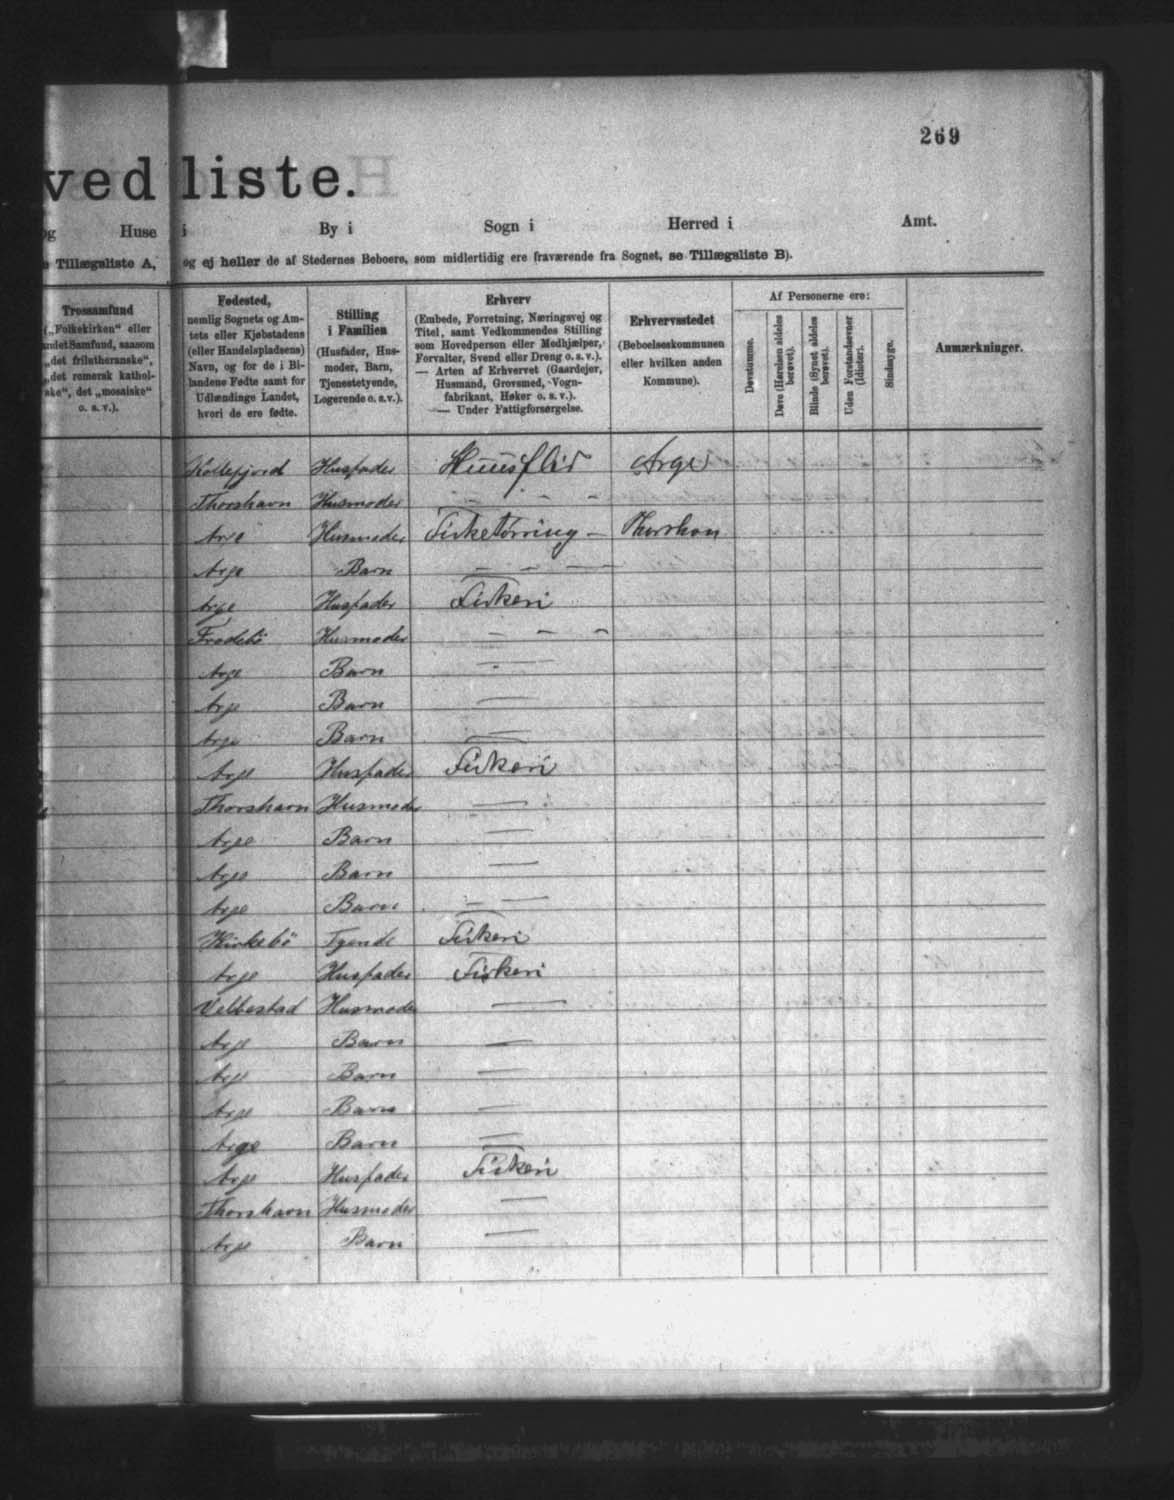 269
ved liste.
og Huse i By i Sogn i Herred i Amt.
Tillægsliste A, og ej heller de af Stedernes Beboere, som midlertidig ere fraværende fra Sognet, se Tillægsliste B).
Trossamfund
(„Folkekirken“ eller
andet Samfund, saasom
„det frilutheranske“,
„det romersk kathol-
ske“, det „mosaiske“
o. s. v.).
Fødested,
nemlig Sognets og Am-
tets eller Kjøbstadens
(eller Handelspladsens)
Navn, og for de i Bi-
landene Fødte samt for
Udlændinge Landet,
hvori de ere fødte.
Stilling
i Familien
(Husfader, Hus-
moder, Barn,
Tjenestetyende,
Logerende o. s.v.).
Erhverv
(Embede, Forretning, Næringsvej og
Titel, samt Vedkommendes Stilling
som Hovedperson eller Medhjælper,
Forvalter, Svend eller Dreng o. s. v.).
— Arten af Erhvervet (Gaardejer,
Husmand, Grovsmed, Vogn-
fabrikant, Høker o. s. v.).
— Under Fattigforsørgelse.
Erhvervsstedet
(Beboelseskommunen
eller hvilken anden
Kommune).
Af Personerne ere:
Døvstumme.
Døve (Hørelsen aldeles
berøvet).
Blinde (Synet aldeles
berøvet).
Uden Forstandsevner
(Idioter).
Sindssyge.
Anmærkninger.
Kollefjord Husfader Huusflid Arge
Thorshavn Husmoder - - - -
Arge Husmoder Fisketørring — Thorshavn
Arge Barn — — —
Arge Husfader Fiskeri
Husmoder - - -
Arge Barn —
Arge Barn —
Arge Barn —
Arge Husfader Fiskeri
Thorshavn Husmoder —
Arge Barn —
Arge Barn —
Arge Barn - —
Kirkebø Tyende Fiskeri
Arge Husfader Fiskeri
Velbestad Husmoder —
Arge Barn —
Arge Barn —
Arge Barn —
Arge Barn —
Arge Husfader Fiskeri
Thorshavn Husmoder —
Arge Barn —